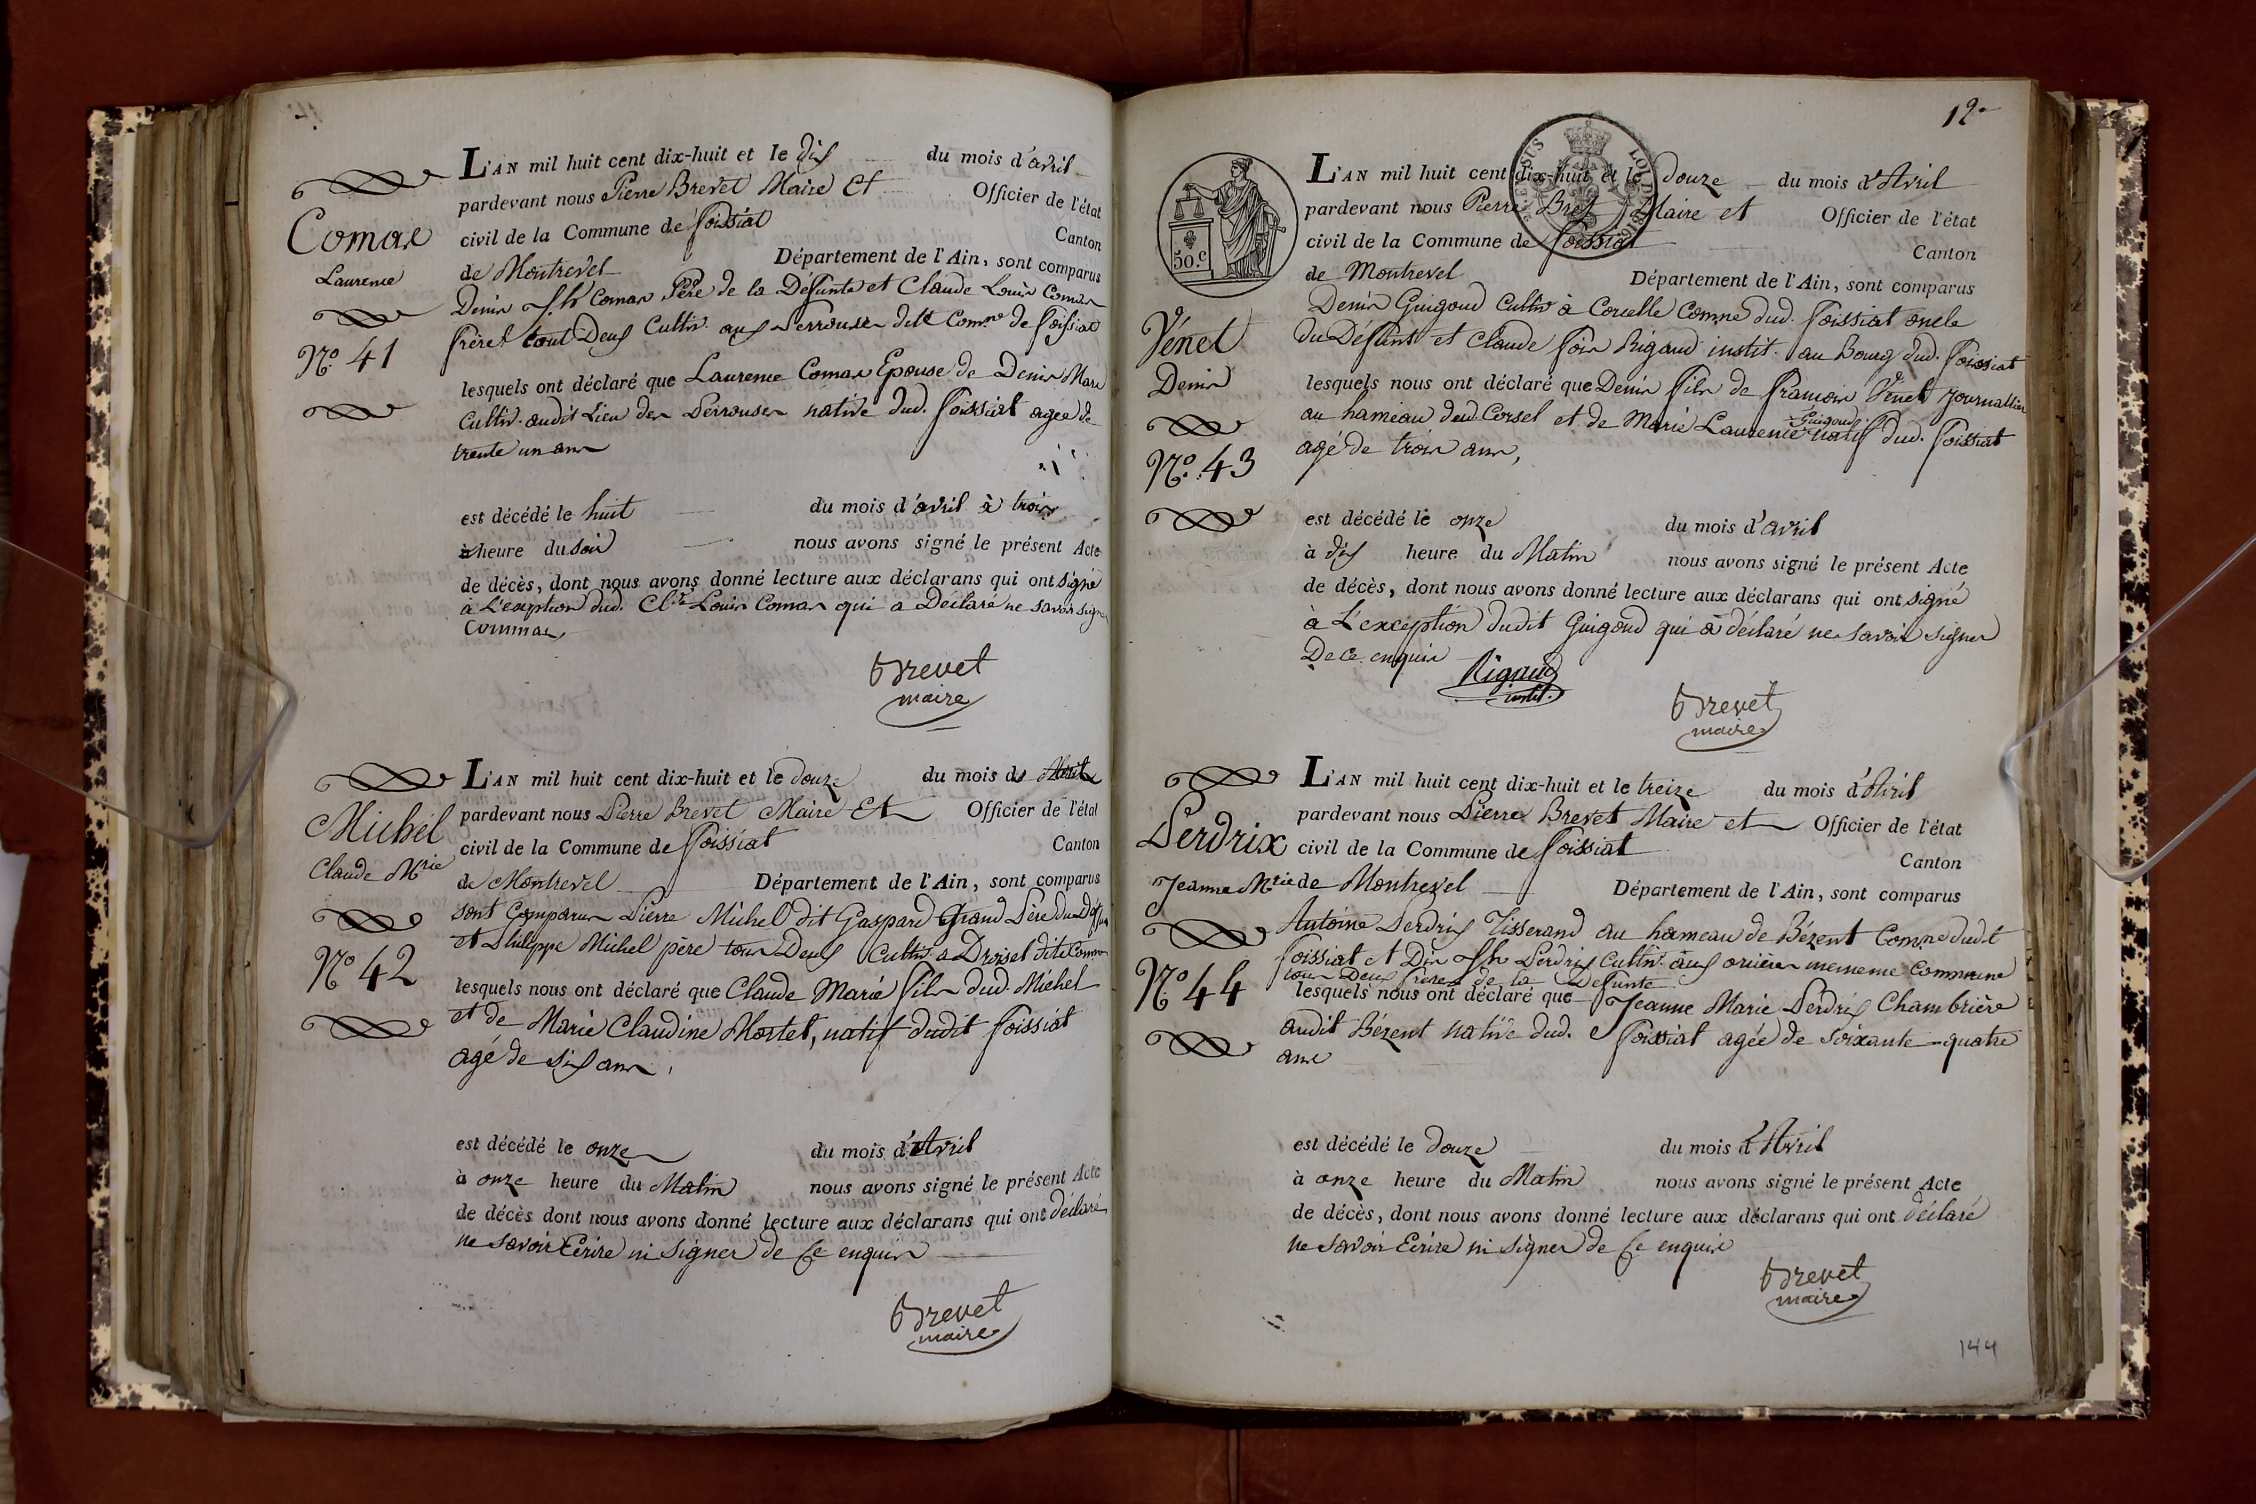 Comas
Laurence
N.o 41
L'AN mil huit cent dix-huit et le dix du mois d'avril
pardevant nous Pierre Brevet Maire et Officier de l'état
civil de la Commune de foissiat Canton
de Montrevel Département de l'Ain, sont comparus
Denis Jh Comas Père de la Defunte et Claude Louis Comas
frère tout Deux Cultiv. aux Perrouses dite Comne de foissiat
lesquels ont déclaré que Laurence Comas Epouse de Denis Mare
Cultiv. audit Lieu des Perrouses native dud. foissiat agée de
trente un ans
est décédé le huit du mois d'avril à trois
à heure du soir nous avons signé le présent Acte
de décès, dont nous avons donné lecture aux déclarans qui ont signé
à L'exeption dud. Cl.de Louis Comas qui a Déclaré ne savoir signer
Commas
Brevet
maire
Michel
Claude Mrie
No 42
L'AN mil huit cent dix-huit et le douze du mois de Avril
pardevant nous Pierre Brevet Maire Et Officier de l'état
civil de la Commune de foissiat Canton
de Montrevel Département de l'Ain, sont comparus
sont Comparus Pierre Michel dit Gaspard Grand Père du Deffun
et Philippe Michel père tous Deux Cultiv. a Droiset dite Comm
lesquels nous ont déclaré que Claude Marie fils dud. Michel
et de Marie Claudine Mortet, natif dudit foissiat
agé de six ans
est décédé le onze du mois d'Avril
à onze heure du Matin nous avons signé le présent Acte
de décès dont nous avons donné lecture aux déclarans qui ont déclaré
ne savoir Ecrire ni signer de Ce enquis
Brevet
maire
12
50.c
LUDOVICUS
Vénet
Denis
No. 43
L'AN mil huit cent dix-huit et le douze du mois d'Avril
pardevant nous Pierre Maire et Officier de l'état
civil de la Commune de foissiat Canton
de Montrevel Département de l'Ain, sont comparus
Denis Guigoud Cultiv à Corcelle Comne dud. foissiat oncle
du Défunt et Claude foix Rigaud instit. au Bourg dud. foissiat
lesquels nous ont déclaré que Denis fils de françois Vénet Journallier
au hameau dud Corsel et de Marie Laurence Guigoud natif dud. foissiat
agé de trois ans,
est décédé le onze du mois d'avril
à dix heure du Matin nous avons signé le présent Acte
de décès, dont nous avons donné lecture aux déclarans qui ont signé
à L'exception dudit Guigoud qui a déclaré ne savoir signer
De ce enquis
Rigaud
instit.
Brevet
maire
Perdrix
Jeanne Mrie
No 44
L'AN mil huit cent dix-huit et le treize du mois d'Avril
pardevant nous Pierre Brevet Maire et Officier de l'état
civil de la Commune de foissiat Canton
de Montrevel Département de l'Ain, sont comparus
Antoine Perdrix Tisserand au hameau de Bézent Comne dudt
foissiat et Din Jh Perdrix Cultiv. aux orières mememe Commune
tous Deux frères de la Defunte
lesquels nous ont déclaré que Jeanne Marie Perdrix Chambrière
audit Bézent native dud. foissiat agée de soixante-quatre
ans
est décédé le douze du mois d'Avril
à onze heure du Matin nous avons signé le présent Acte
de décès, dont nous avons donné lecture aux déclarans qui ont déclaré
ne savoir Ecrire ni signer de Ce enquis
Brevet
maire
144